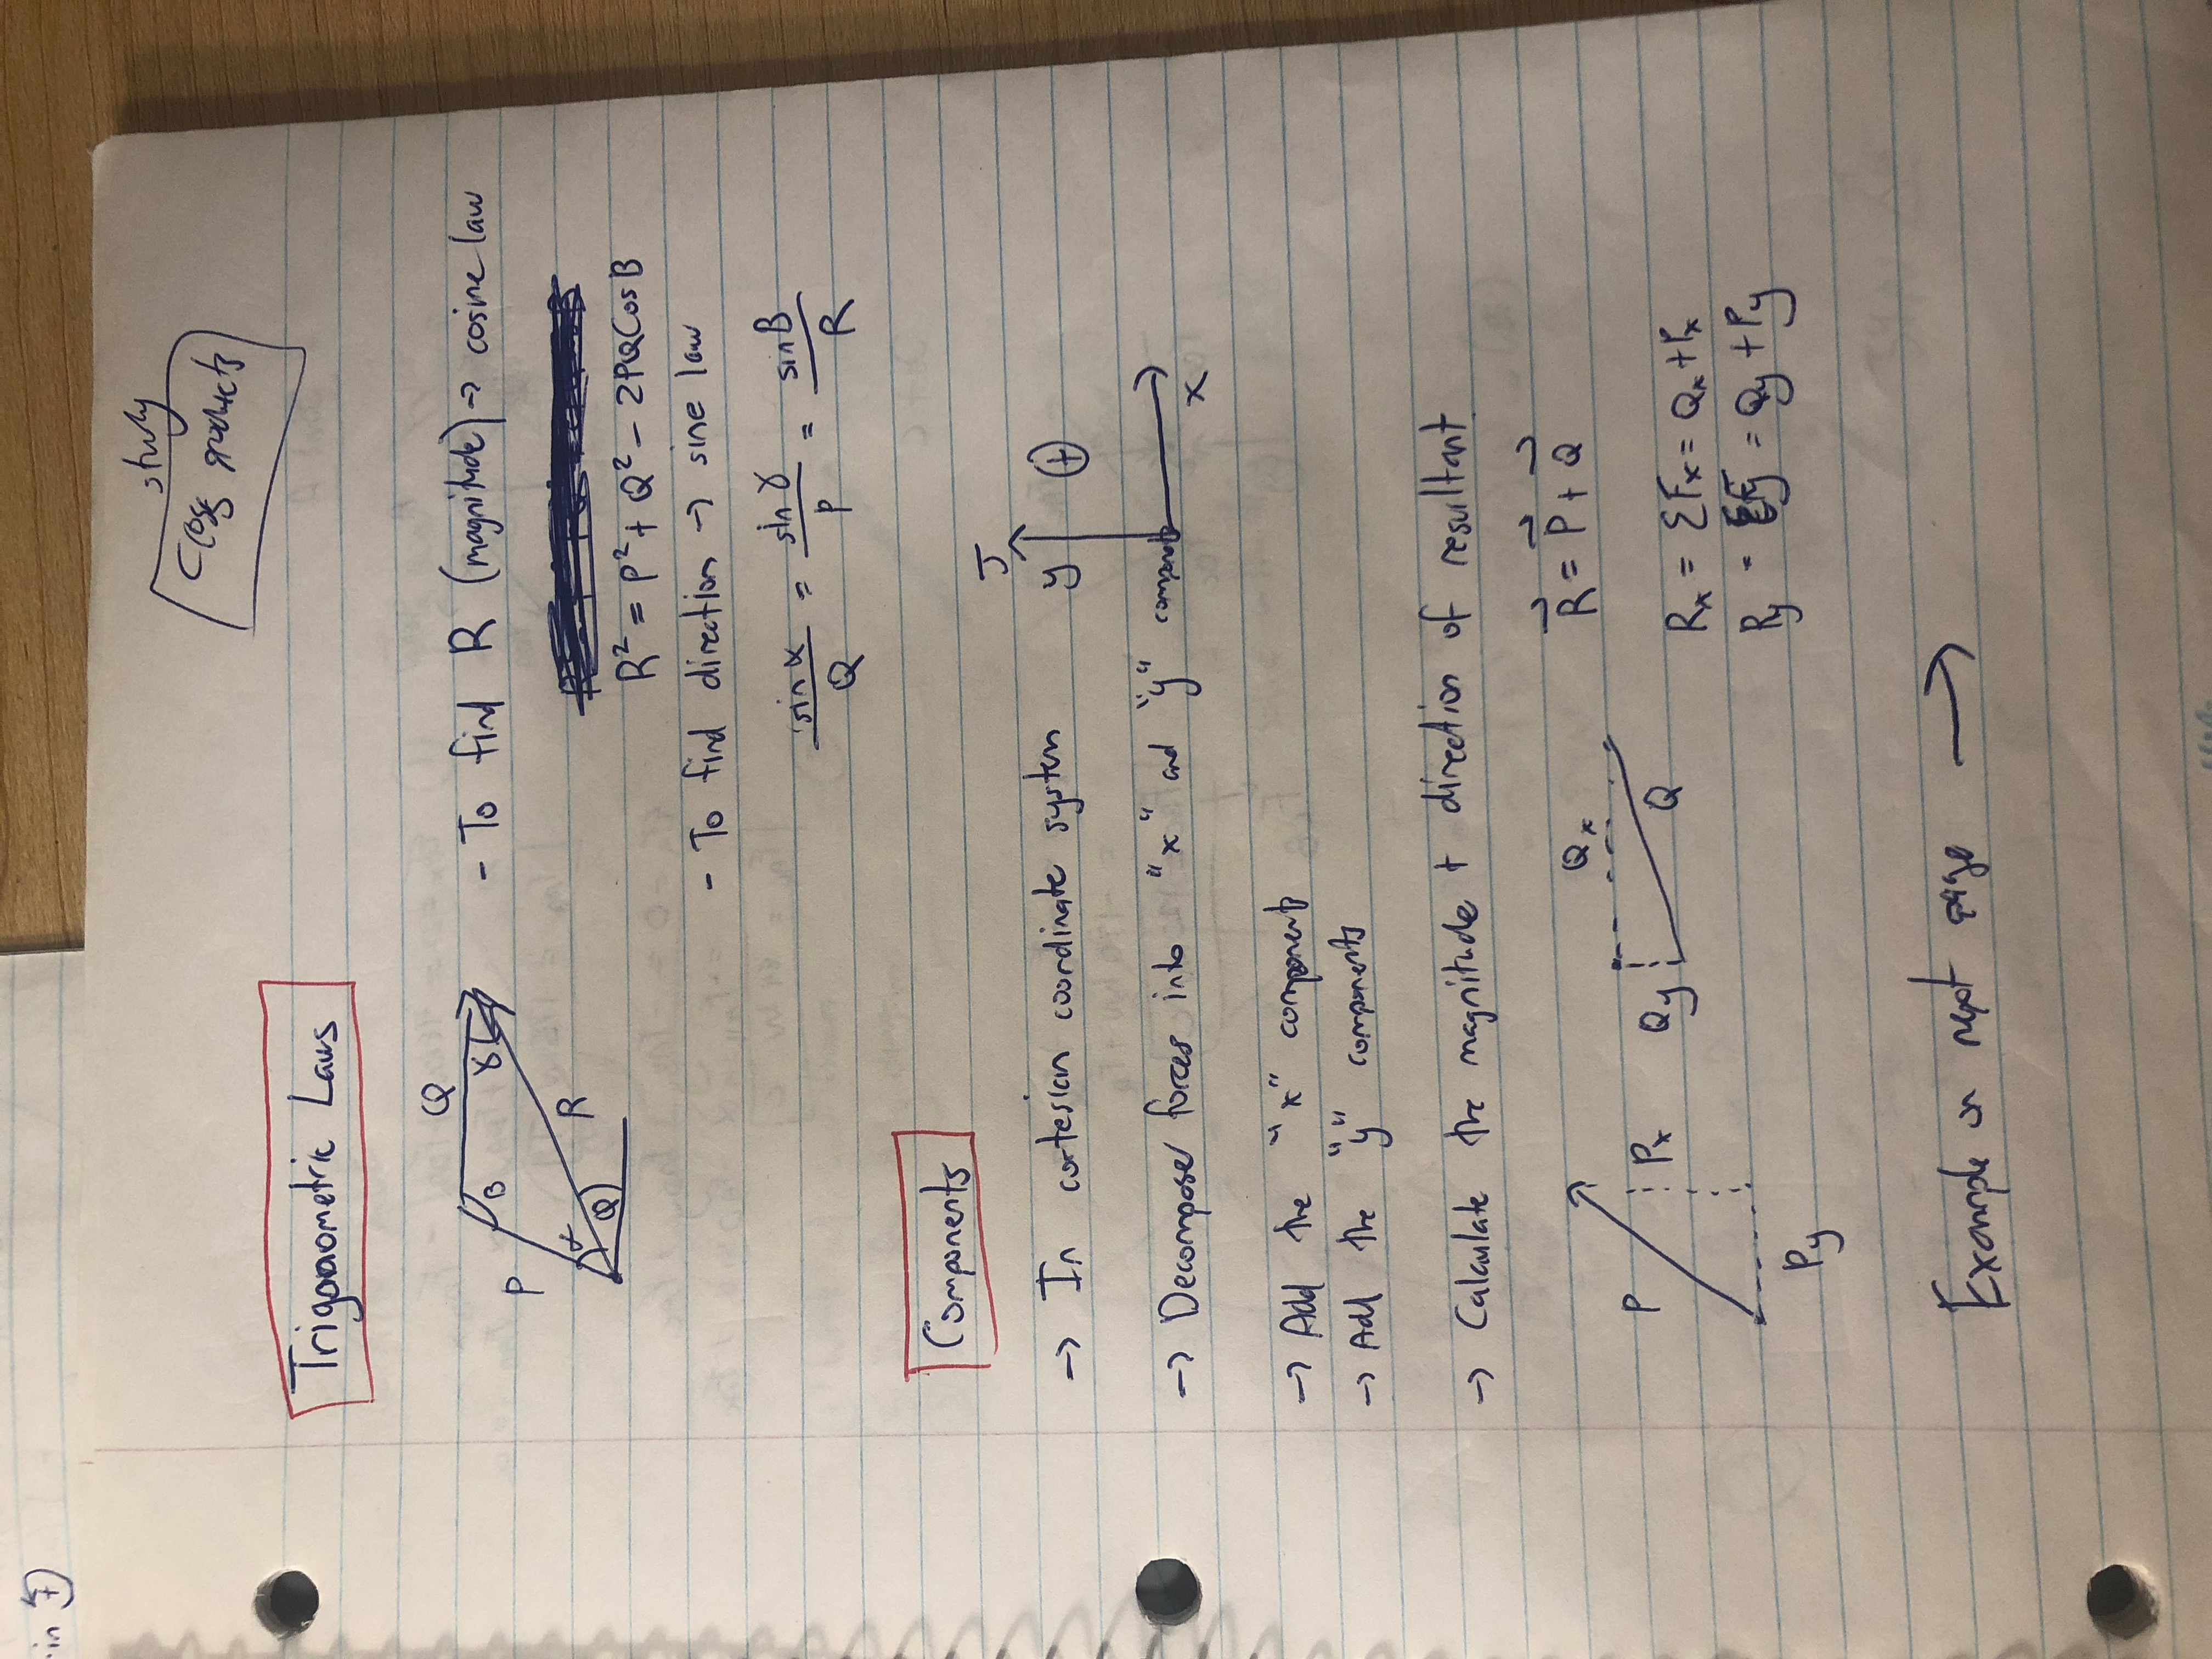 study
Cross products
Trigonometric Laws
- To find R (magnitude) → cosine law
R² = P² + Q² - 2PQCosB
- To find direction → sine law
sin α / Q = sin γ / P = sin B / R
Q
γ
B
P
R
Components
→ In cartesian coordinate system
y
+
x
→ Decompose forces into "x" and "y" components
→ Add the "x" components
→ Add the "y" components
→ Calculate the magnitude + direction of resultant
R = P + Q
P
Px
Py
Qx
Qy
Q
Rx = ΣFx = Qx + Px
Ry = ΣFy = Qy + Py
Example on next page →
in +